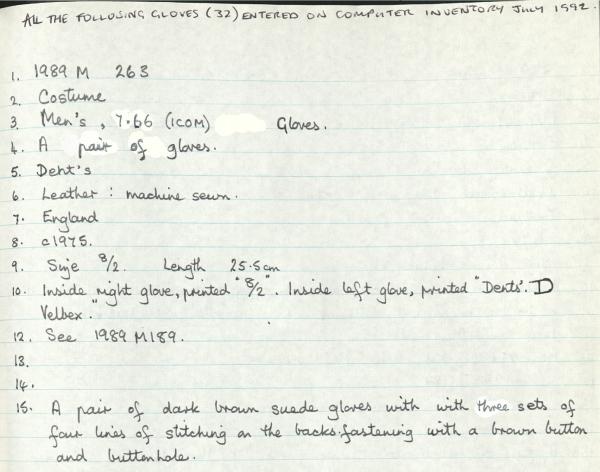 ALL THE FOLLOWING GLOVES (32) ENTERED ON COMPUTER INVENTORY JULY 1992.
1. 1989 M 263
2. Costume
3. Men's, 7.66 (ICOM) Gloves.
4. A pair of gloves.
5. Dent's
6. Leather : machine sewn.
7. England
8. c1975.
9. Size 8/2. Length 25.5cm
10. Inside right glove, printed "8/2". Inside left glove, printed "Dents'. D
Velbex."
12. See 1989 M189.
13.
14.
15. A pair of dark brown suede gloves with with three sets of
four lines of stitching on the backs.fastening with a brown button
and buttonhole.